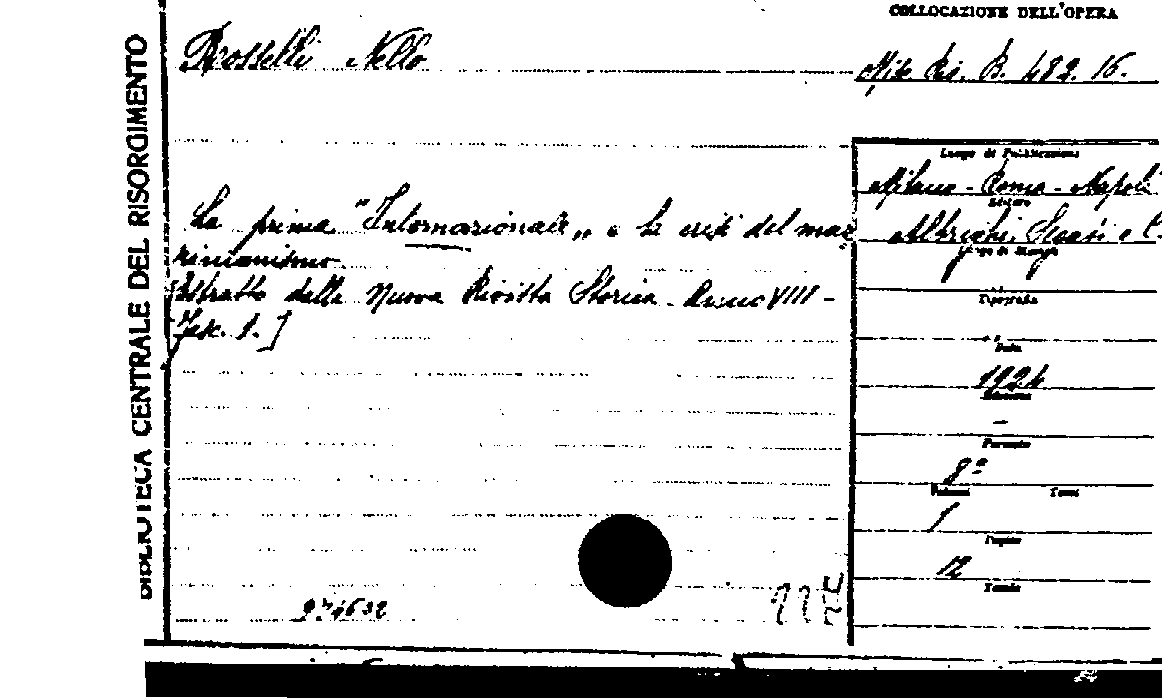 BIBLIOTECA CENTRALE DEL RISORGIMENTO
COLLOCAZIONE DELL'OPERA
Rosselli Nello
Ris. B. 482. 16.
Luogo di Pubblicazione
Milano - Roma - Napoli
Editore
La prima "Internazionale" e la crisi del maz
Albrighi. Segati e C.
Luogo di Stampa
zinianismo.
[Estratto dalla Nuova Rivista Storica - Anno VIII -
Tipografia
Fasc. 1.]
Data
1924
Edizione
-
Formato
8º
Volumi Tomi
1
Pagine
12
Tavole